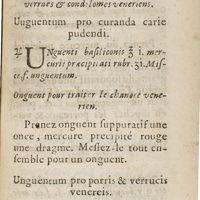 verrues & condilomes veneriens.
Unguentum pro curanda carie
pudendi.
℞ UNguenti basiliconis ʒ i. mer-
curii præcipitati rubr. ʒi. Mis-
ce f. unguentum.
Onguent pour traiter le chancre vene-
rien.
Prenez onguent suppuratif une
once, mercure precipité rouge
une dragme. Meslez le tout en-
semble pour un onguent.
Unguentum pro porris & verrucis
venereis.